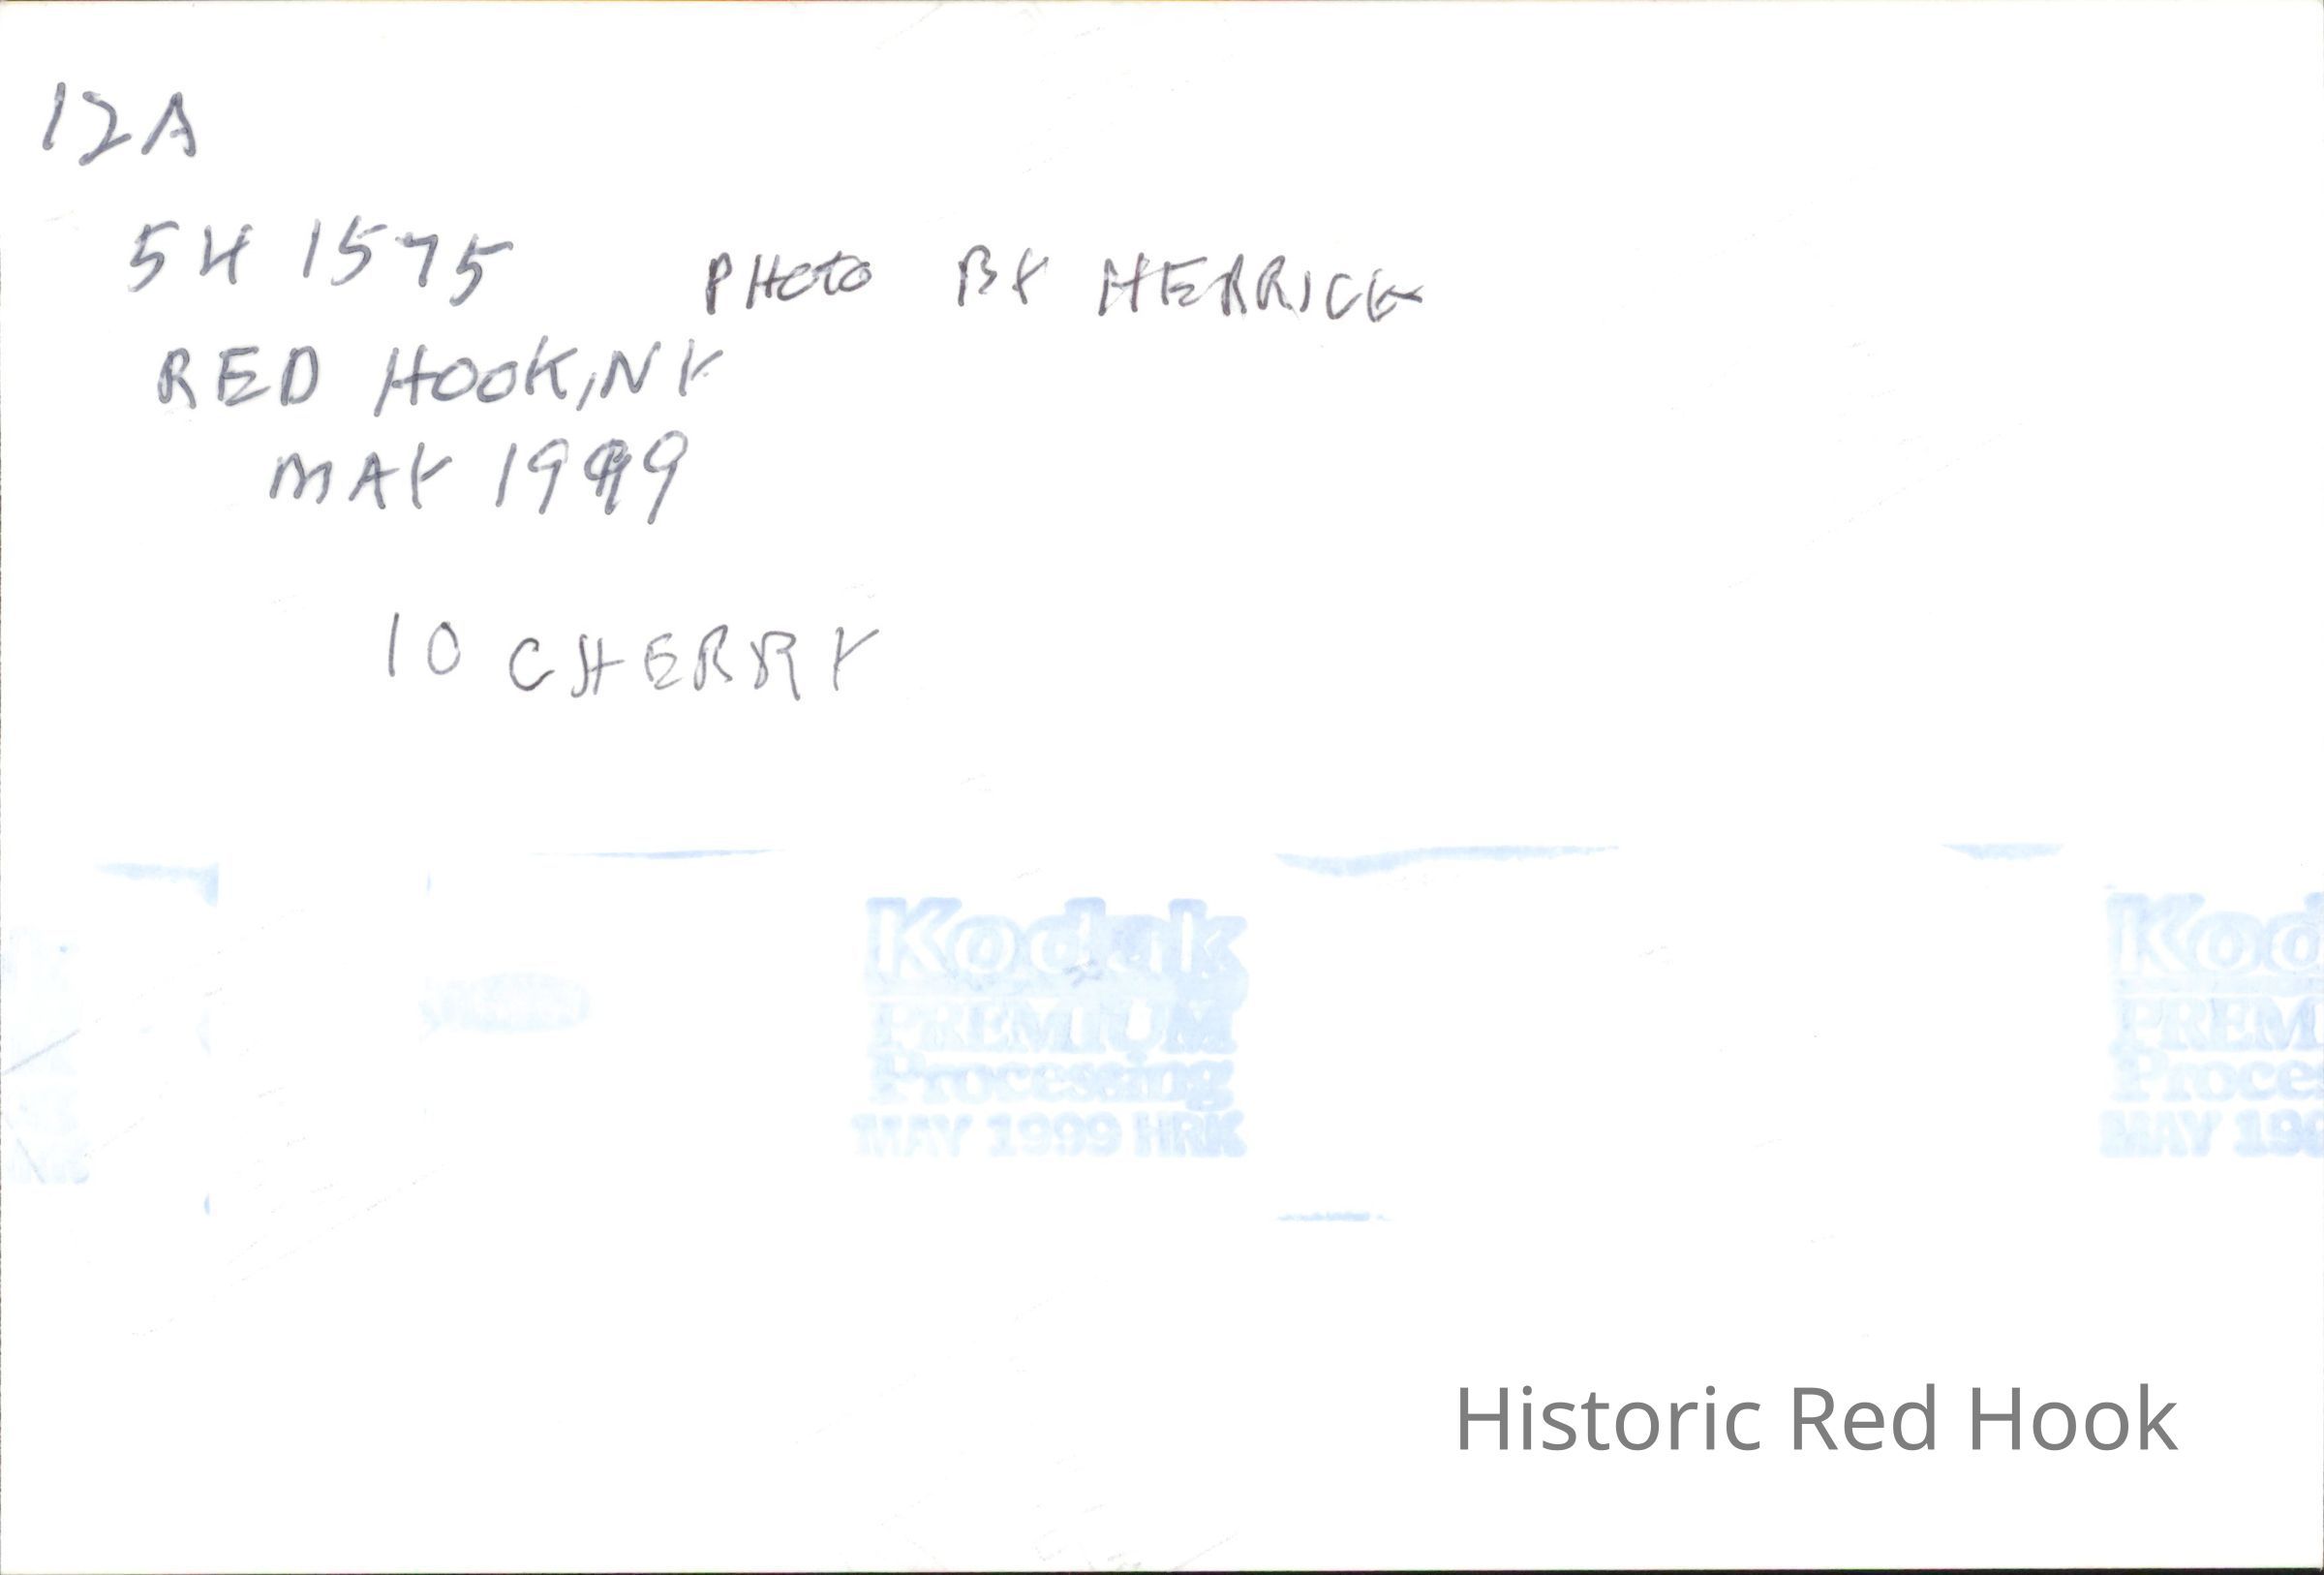 12A
54 1575 PHOTO BY HERRICK
RED HOOK, NY
MAY 1999
10 CHERRY
Kodak Kod
PREMIUM PREM
Processing Proces
MAY 1999 HRK MAY 199
Historic Red Hook